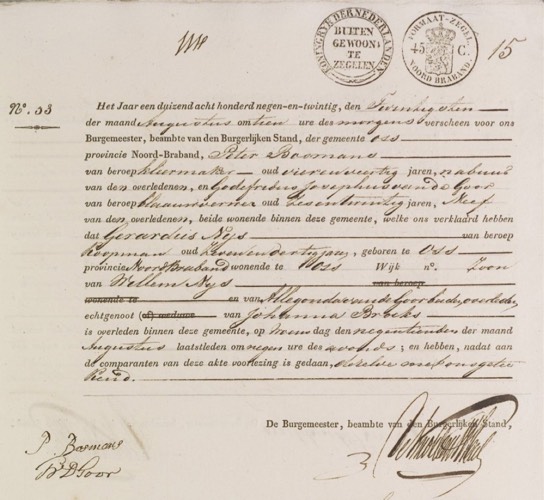 KONINGRYK DER NEDERLANDEN
BUITEN GEWOON TE ZEGELEN
FORMAAT-ZEGEL
45 C.
NOORD BRABAND.
15
N°. 53
Het Jaar een duizend acht honderd negen-en-twintig, den Twintigsten
der maand Augustus om tien ure des morgens verscheen voor ons
Burgemeester, beambte van den Burgerlijken Stand, der gemeente Oss
provincie Noord-Braband, Peter Boomans
van beroep kleermaker oud vierenveertig jaren, nabuur
van den overledenen, en Godefridus Josephus van de Goor
van beroep blaauwverwer oud Zesentwintig jaren, Neef
van den overledenen, beide wonende binnen deze gemeente, welke ons verklaard hebben
dat Gerardus Nijs van beroep
Koopman oud jaar, geboren te Oss
provincie Noord Braband wonende te Oss Wijk n°. Zoon
van Willem Nijs van beroep
wonende te en van Allegonda van de Goor beide overleden
echtgenoot (of) weduwe van Johanna Broeks
is overleden binnen deze gemeente, op Woensdag den negentienden der maand
Augustus laatstleden om negen ure des avonds; en hebben, nadat aan
de comparanten van deze akte voorlezing is gedaan, dezelve met ons getee
kend.
De Burgemeester, beambte van den Burgerlijken Stand,
P. Boomans